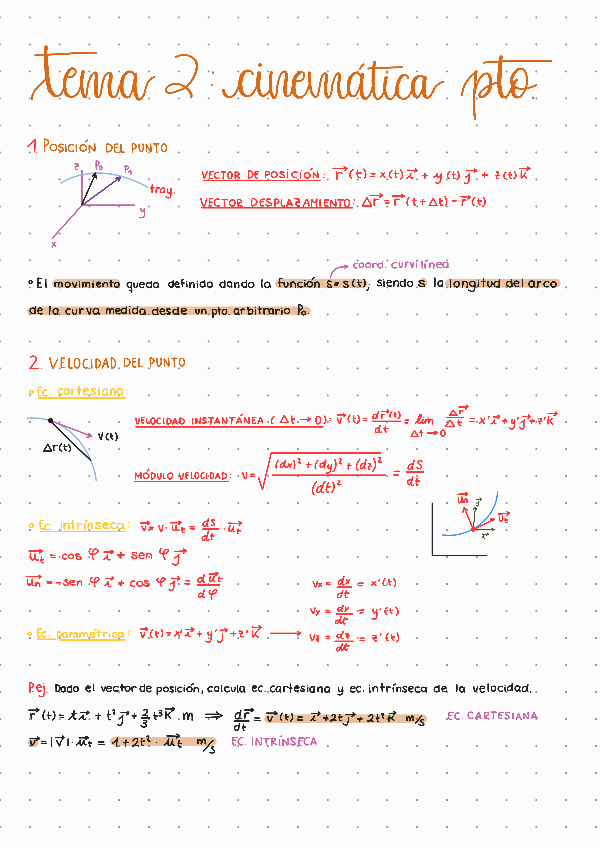 tema 2: cinemática pto
1. POSICIÓN DEL PUNTO
z P₀ P₁
tray.
y
x
VECTOR DE POSICIÓN: r⃗(t) = x(t) i⃗ + y(t) j⃗ + z(t) k⃗
VECTOR DESPLAZAMIENTO: Δr⃗ = r⃗(t+Δt) - r⃗(t)
coord. curvilínea
° El movimiento queda definido dando la función s=s(t), siendo s la longitud del arco
de la curva medida desde un pto arbitrario P₀.
2. VELOCIDAD DEL PUNTO
° Ec. cartesiana:
V(t)
Δr(t)
VELOCIDAD INSTANTÁNEA (Δt → 0): v⃗(t) = dr⃗(t)/dt = lim Δt→0 Δr⃗/Δt = x' i⃗ + y' j⃗ + z' k⃗
MÓDULO VELOCIDAD: v = √((dx)² + (dy)² + (dz)²/(dt)²) = dS/dt
u⃗n j⃗ u⃗t
i⃗
° Ec. intrínseca: v⃗ = v · u⃗t = dS/dt · u⃗t
u⃗t = cos φ i⃗ + sen φ j⃗
u⃗n = -sen φ i⃗ + cos φ j⃗ = du⃗t/dφ
Vx = dx/dt = x'(t)
Vy = dy/dt = y'(t)
° Ec. paramétrica: v⃗(t) = x' i⃗ + y' j⃗ + z' k⃗ → Vz = dz/dt = z'(t)
P.ej. Dado el vector de posición, calcula ec. cartesiana y ec. intrínseca de la velocidad.
r⃗(t) = t i⃗ + t² j⃗ + 2/3 t³ k⃗ m ⇒ dr⃗/dt = v⃗(t) = i⃗ + 2t j⃗ + 2t² k⃗ m/s EC. CARTESIANA
v⃗ = |v⃗| · u⃗t = 1+2t² · u⃗t m/s EC. INTRÍNSECA